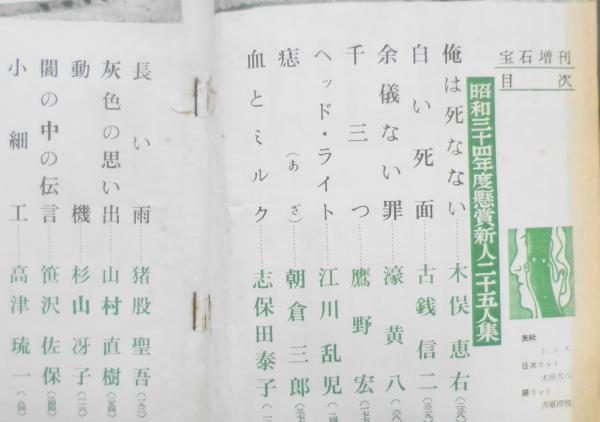 宝石増刊
目次
昭和三十四年度懸賞新人二十五人集
表紙
目次カット
扉カット
俺は死なない……木俣恵右
白い死面……古銭信二
余儀ない罪……濠黄八
千三つ……鷹野宏
ヘッド・ライト……江川乱児
痣(あざ)……朝倉三郎
血とミルク……志保田泰子
長い雨……猪股聖吾
灰色の思い出……山村直樹
動機……杉山冴子
闇の中の伝言……笹沢佐保
小細工……高津琉一